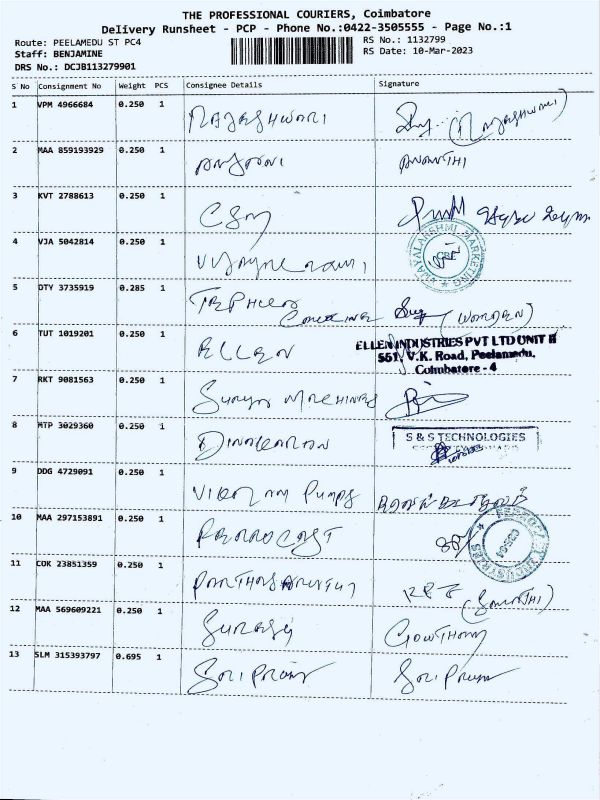 THE PROFESSIONAL COURIERS, Coimbatore
Delivery Runsheet - PCP - Phone No.:0422-3505555 - Page No.:1
Route: PEELAMEDU ST PC4
Staff: BENJAMINE
DRS No.: DCJB113279901
RS No.: 1132799
RS Date: 10-Mar-2023
S No Consignment No Weight PCS Consignee Details Signature
1 VPM 4966684 0.250 1 RAJESHWARI
2 MAA 859193929 0.250 1 ANANTHI
3 KVT 2788613 0.250 1
4 VJA 5042814 0.250 1
VIJAYALAKSHMI MARKETING
5 DTY 3735919 0.285 1 (WARDEN)
6 TUT 1019201 0.250 1 ELLEN
ELLEN INDUSTRIES PVT LTD UNIT II
551, V.K. Road, Peelamedu,
Coimbatore - 4
7 RKT 9081563 0.250 1 Surya MACHINES
8 MTP 3029360 0.250 1 DINAKARAN
S & S TECHNOLOGIES
9 DDG 4729091 0.250 1 VIKRAM PUMPS
10 MAA 297153891 0.250 1
11 COK 23851359 0.250 1
12 MAA 569609221 0.250 1 SURESH Gowtham
13 SLM 315393797 0.695 1 Sri Priya Sri Priya